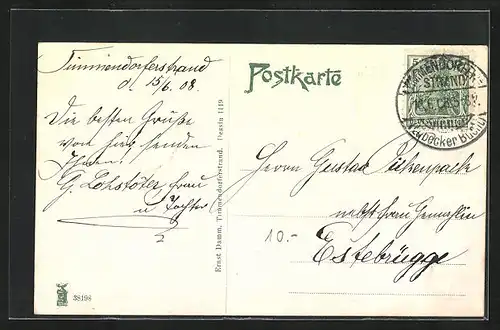 Timmendorferstrand
d. 15/6. 08.
Die besten Grüße
von hier senden
Ihnen
G. Lohstöter, Frau
u Tochter
Ernst Damm, Timmendorferstrand. Dessin 1119
38198
Postkarte
5
TIMMENDORFER-
STRAND
(Lübecker Bucht)
Herrn Gustav
nebst Frau Gemahlin
Estebrügge
10.-